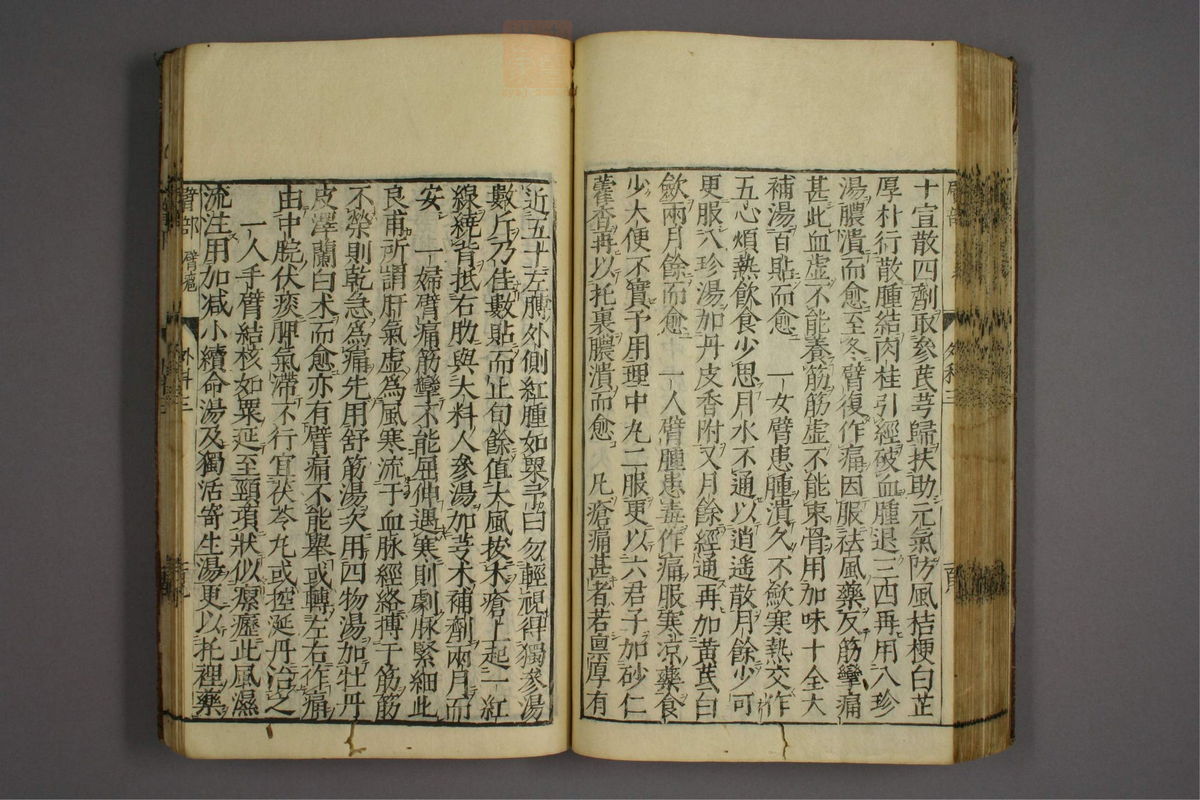 十宣散四劑取參芪芎歸扶助元氣防風桔梗白芷
厚朴行散腫結肉桂引經破血腫退三四再用八珍
湯膿潰而愈至冬臂復作痛因服祛風藥反筋攣痛
甚此血虛不能養筋筋虛不能束骨用加味十全大
補湯百貼而愈 一女臂患腫潰久不歛寒熱交作
五心煩熱飲食少思月水不通以逍遥散月餘少可
更服八珍湯加丹皮香附又月餘經通再加黄芪白
歛兩月餘而愈 一人臂腫患毒作痛服寒凉藥食
少大便不實予用理中丸二服更以六君子加砂仁
藿香再以托裏膿潰而愈 凡瘡痛甚者若禀厚有
近五十左膊外側紅腫如栗予曰勿輕視得獨參湯
數斤乃佳數貼而止旬餘值大風拔木瘡上起一紅
線繞背抵右肋與大料人參湯加芎术補劑兩月而
安 一婦臂痛筋攣不能屈伸遇寒則劇脉緊細此
良甫所謂肝氣虛為風寒流于血脉經絡搏于筋筋
不榮則乾急為痛先用舒筋湯次用四物湯加牡丹
皮澤蘭白术而愈亦有臂痛不能舉或轉左右作痛
由中脘伏痰脾氣滯不行宜茯苓丸或控涎丹治之
一人手臂結核如栗延至頸項狀似瘰癧此風濕
流注用加减小續命湯及獨活寄生湯更以托裡藥
臂部 臂 外科三